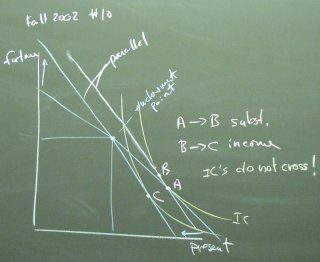 Fall 2002 #10
future
parallel
endowment
point
A → B subst.
B → C income
IC's do not cross!
B
A
C
IC
present